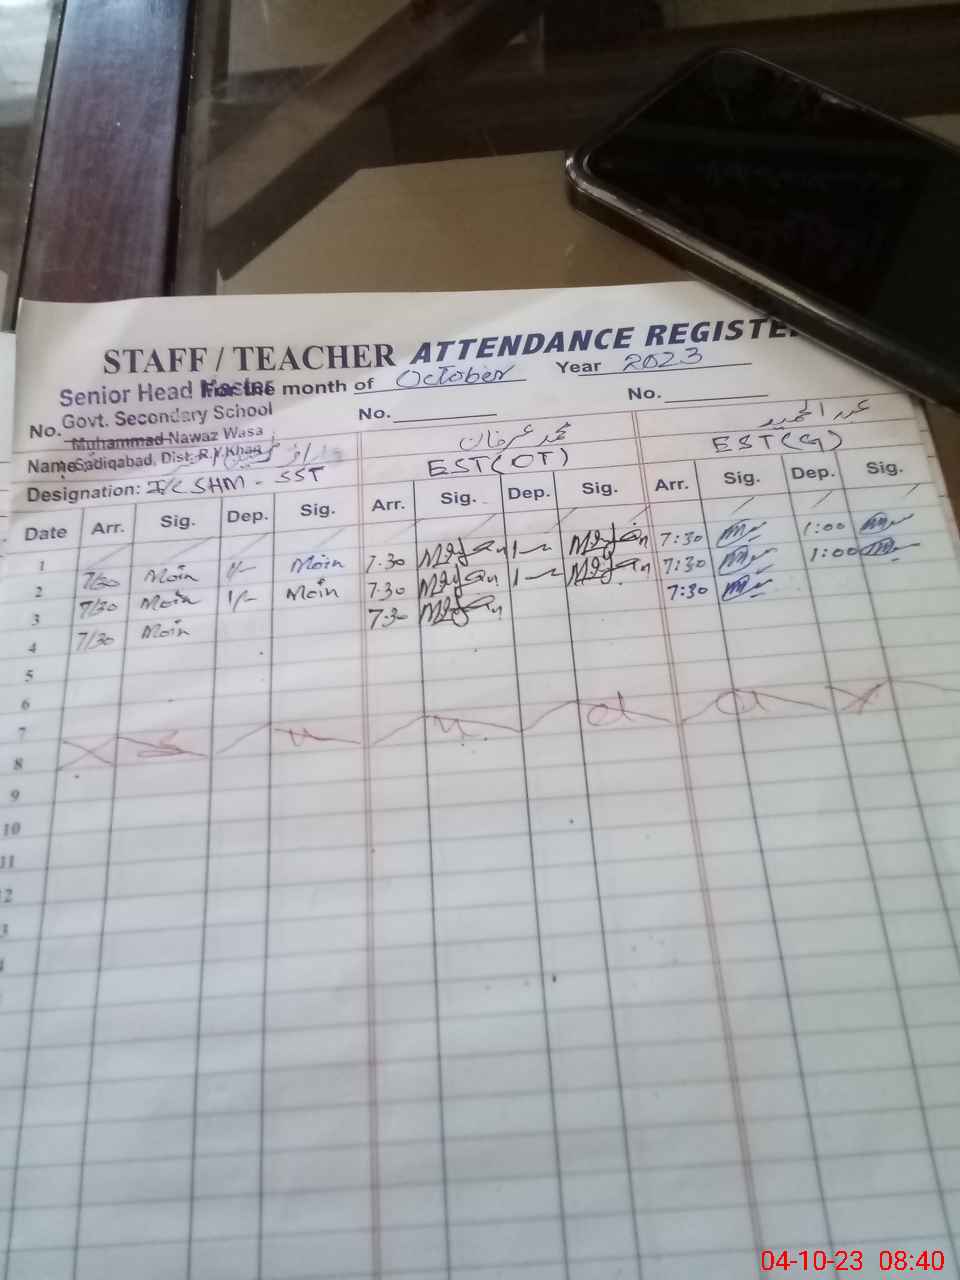 STAFF / TEACHER ATTENDANCE REGISTE
Senior Head Master For the month of October Year 2023
No. Govt. Secondary School No. No.
Muhammad Nawaz Wasa
Name: Sadiqabad, Dist. R.Y.Khan محمد عرفان عبدالحمید
Designation: I/C SHM - SST EST(OT) EST(G)
Date Arr. Sig. Dep. Sig. Arr. Sig. Dep. Sig. Arr. Sig. Dep. Sig.
1
2 7/30 Moin 1/- Moin 7.30 1- 7:30 1:00
3 7/30 Moin 1/- Moin 7.30 1- 7:30 1:00
4 7/30 Moin 7.30 7:30
5
6
7
8 S u n d a y
9
10
11
12
3
4
04-10-23 08:40